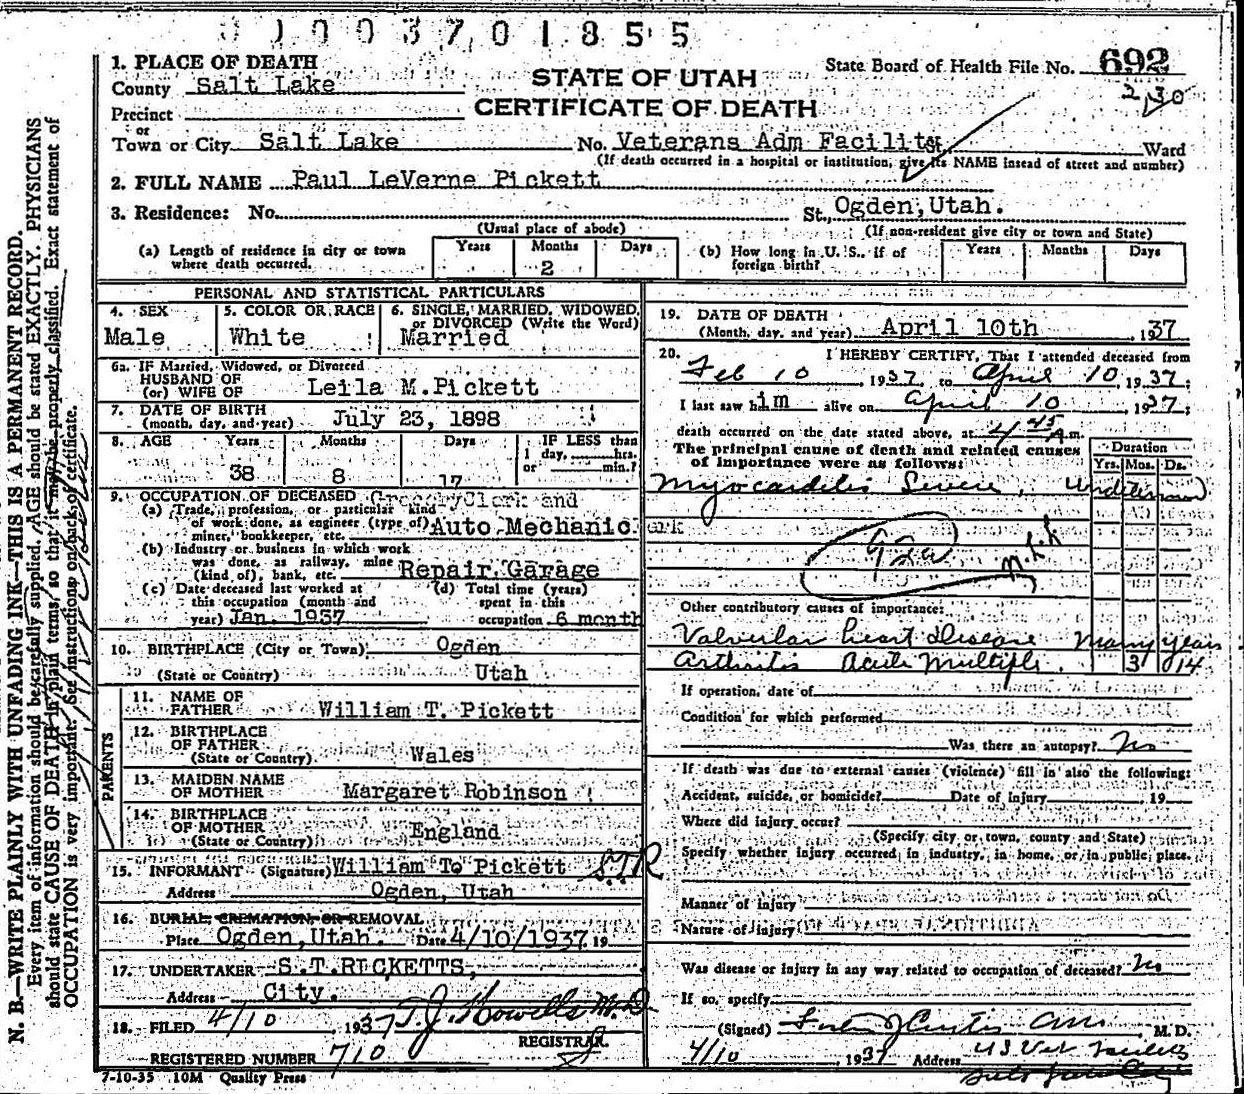 01003701855
1. PLACE OF DEATH
County Salt Lake
Precinct
or
Town or City Salt Lake
STATE OF UTAH
CERTIFICATE OF DEATH
State Board of Health File No. 692
2,30
No. Veterans Adm Facility St. Ward
(If death occurred in a hospital or institution, give its NAME insead of street and number)
2. FULL NAME Paul LeVerne Pickett
3. Residence: No. St., Ogden, Utah.
(Usual place of abode) (If non-resident give city or town and State)
(a) Length of residence in city or town where death occurred. Years Months 2 Days
(b) How long in U. S., if of foreign birth? Years Months Days
PERSONAL AND STATISTICAL PARTICULARS
4. SEX
Male
5. COLOR OR RACE
White
6. SINGLE, MARRIED, WIDOWED,
or DIVORCED (Write the Word)
Married
6a. IF Married, Widowed, or Divorced
HUSBAND OF
(or) WIFE OF Leila M. Pickett
7. DATE OF BIRTH
(month, day, and year) July 23, 1898
8. AGE Years Months Days IF LESS than
1 day, hrs.
or min.?
38 8 17
9. OCCUPATION OF DECEASED Grocery Clerk and
(a) Trade, profession, or particular kind
of work done, as engineer (type of)
miner, bookkeeper, etc. Auto Mechanic
(b) Industry or business in which work
was done, as railway, mine
(kind of), bank, etc. Repair Garage
(c) Date deceased last worked at
this occupation (month and
year) Jan. 1937
(d) Total time (years)
spent in this
occupation 6 month
10. BIRTHPLACE (City or Town) Ogden
(State or Country) Utah
PARENTS
11. NAME OF
FATHER William T. Pickett
12. BIRTHPLACE
OF FATHER
(State or Country) Wales
13. MAIDEN NAME
OF MOTHER Margaret Robinson
14. BIRTHPLACE
OF MOTHER
(State or Country) England
15. INFORMANT (Signature) William To Pickett S.T.R
Address Ogden, Utah
16. BURIAL, CREMATION, OR REMOVAL
Place Ogden, Utah. Date 4/10/1937 19
17. UNDERTAKER S.T.RICKETTS,
Address City.
18. FILED 4/10 1937 T.J. Howells M.D.
REGISTRAR.
REGISTERED NUMBER 710
7-10-35 10M Quality Press
19. DATE OF DEATH
(Month, day, and year) April 10th, 1937
20. I HEREBY CERTIFY, That I attended deceased from
Feb 10, 1937, to April 10, 1937;
I last saw him alive on April 10, 1937;
death occurred on the date stated above, at 4 45 A.m.
The principal cause of death and related causes
of importance were as follows:
Duration
Yrs. Mos. Ds.
Myocarditis Severe,
92a
Other contributory causes of importance:
Valvular heart Disease Many years
Arthritis Acute Multiple. 3 14
If operation, date of
Condition for which performed
Was there an autopsy? No
If death was due to external causes (violence) fill in also the following:
Accident, suicide, or homicide? Date of injury , 19
Where did injury occur?
(Specify city or town, county and State)
Specify whether injury occurred in industry, in home, or in public place.
Manner of injury
Nature of injury
Was disease or injury in any way related to occupation of deceased? No
If so, specify
(Signed) M. D.
4/10 1937 Address U S Vet Facility
Salt Lake City
N. B.—WRITE PLAINLY WITH UNFADING INK—THIS IS A PERMANENT RECORD.
Every item of information should be carefully supplied. AGE should be stated EXACTLY. PHYSICIANS
should state CAUSE OF DEATH in plain terms, so that it may be properly classified. Exact statement of
OCCUPATION is very important. See instructions on back of certificate.